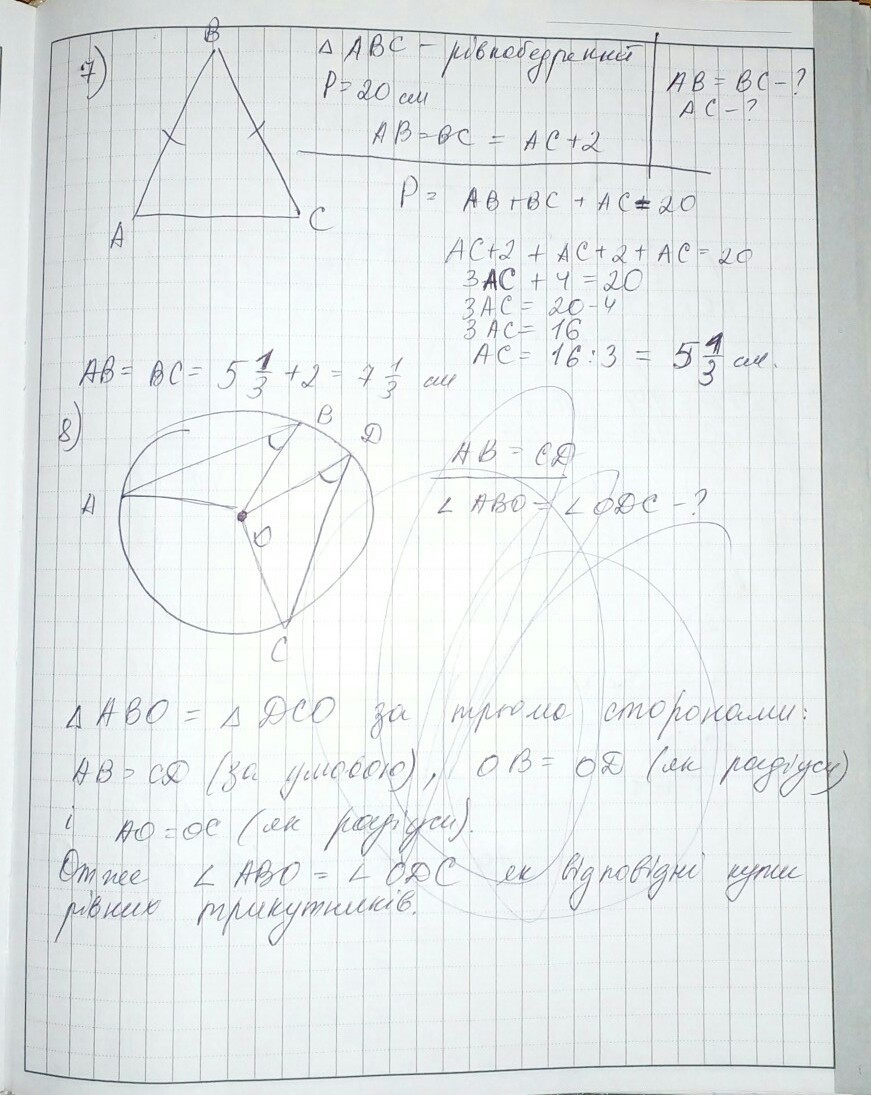 7)
B
A
C
△ ABC - рівнобедрений
P = 20 см
AB = BC = AC + 2
AB = BC - ?
AC - ?
P = AB + BC + AC = 20
AC + 2 + AC + 2 + AC = 20
3AC + 4 = 20
3AC = 20 - 4
3AC = 16
AC = 16 : 3 = 5 1/3 см.
AB = BC = 5 1/3 + 2 = 7 1/3 см
8)
A
B
D
O
C
AB = CD
∠ ABO = ∠ ODC - ?
△ ABO = △ DCO за трьома сторонами:
AB = CD (за умовою), OB = OD (як радіуси)
і AO = OC (як радіуси).
Отже ∠ ABO = ∠ ODC як відповідні кути
рівних трикутників.